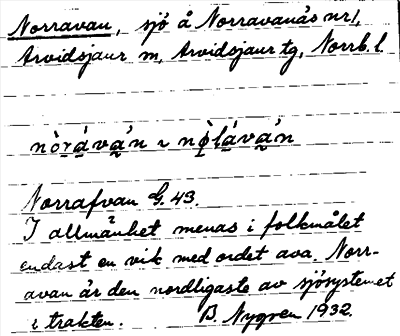 Norravan, sjö å Norravanås nr 1,
Arvidsjaur sn, Arvidsjaur tg, Norrb. l.
nòr̲á̲vả̲n ~ nò̩lá̲vả̲n
Norrafvan G. 43.
I allmänhet menas i folkmålet
endast en vik med ordet ava. Norr-
avan är den nordligaste av sjösystemet
i trakten. B. Nygren 1932.